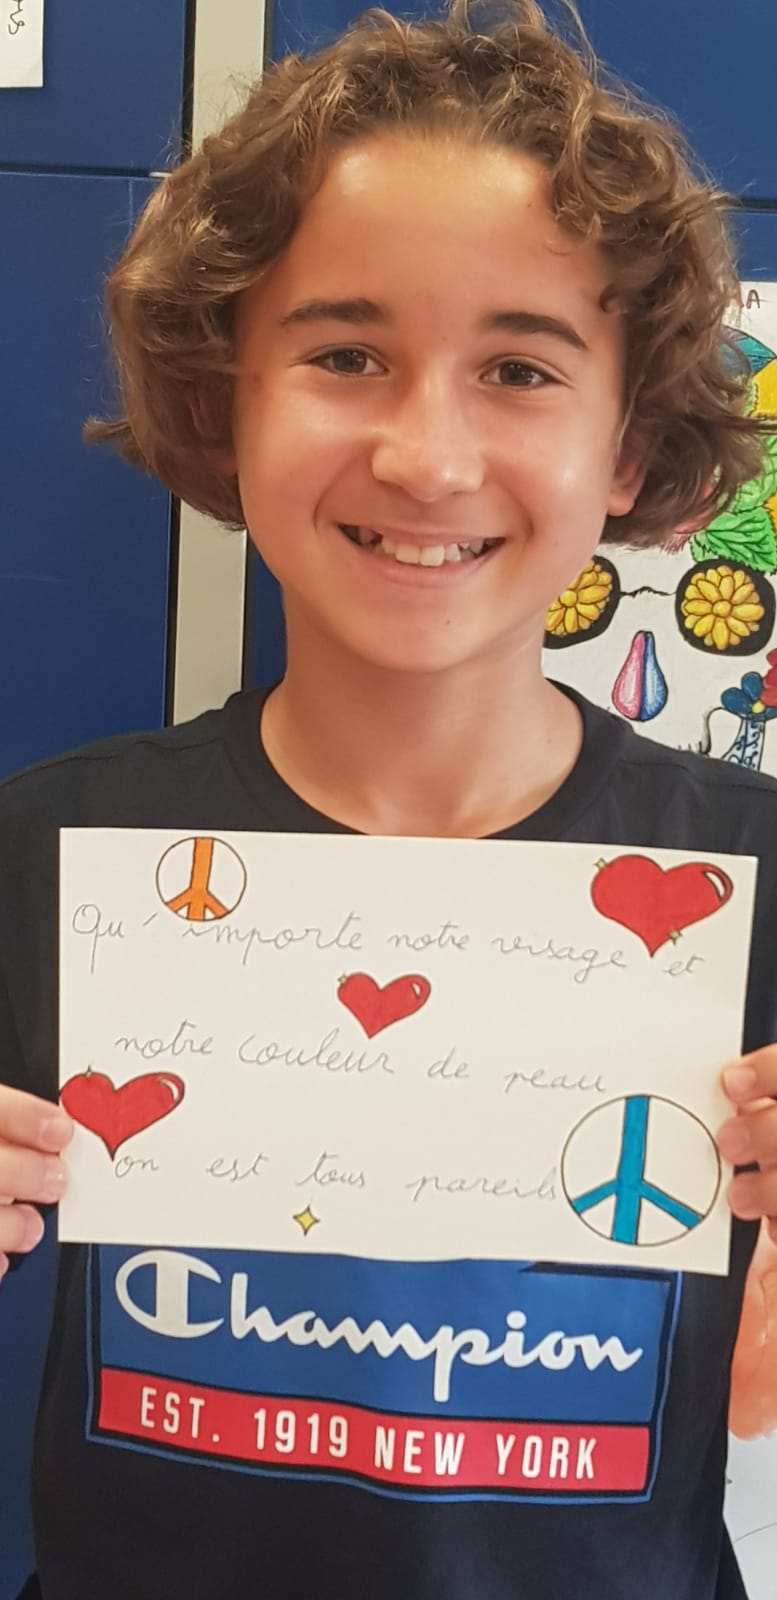 Qu'importe notre visage et
notre couleur de peau
on est tous pareils
Champion
EST. 1919 NEW YORK